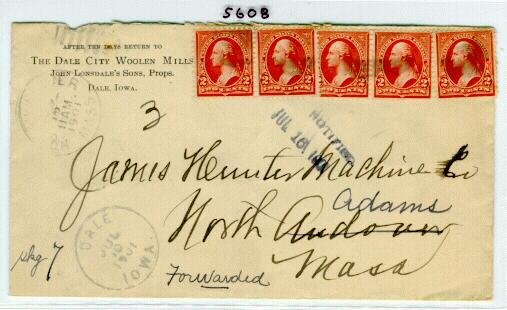 5608
AFTER TEN DAYS RETURN TO
THE DALE CITY WOOLEN MILLS
JOHN LONSDALE'S SONS, PROPS.
DALE, IOWA.
2 2 2 2 2
11 AM
1901
MASS
NOTIFIED
JUL 16
3
James Hunter Machine Co
Adams
North Andover
Mass
DALE
JUL
10
1901
IOWA.
pkg 7
Forwarded